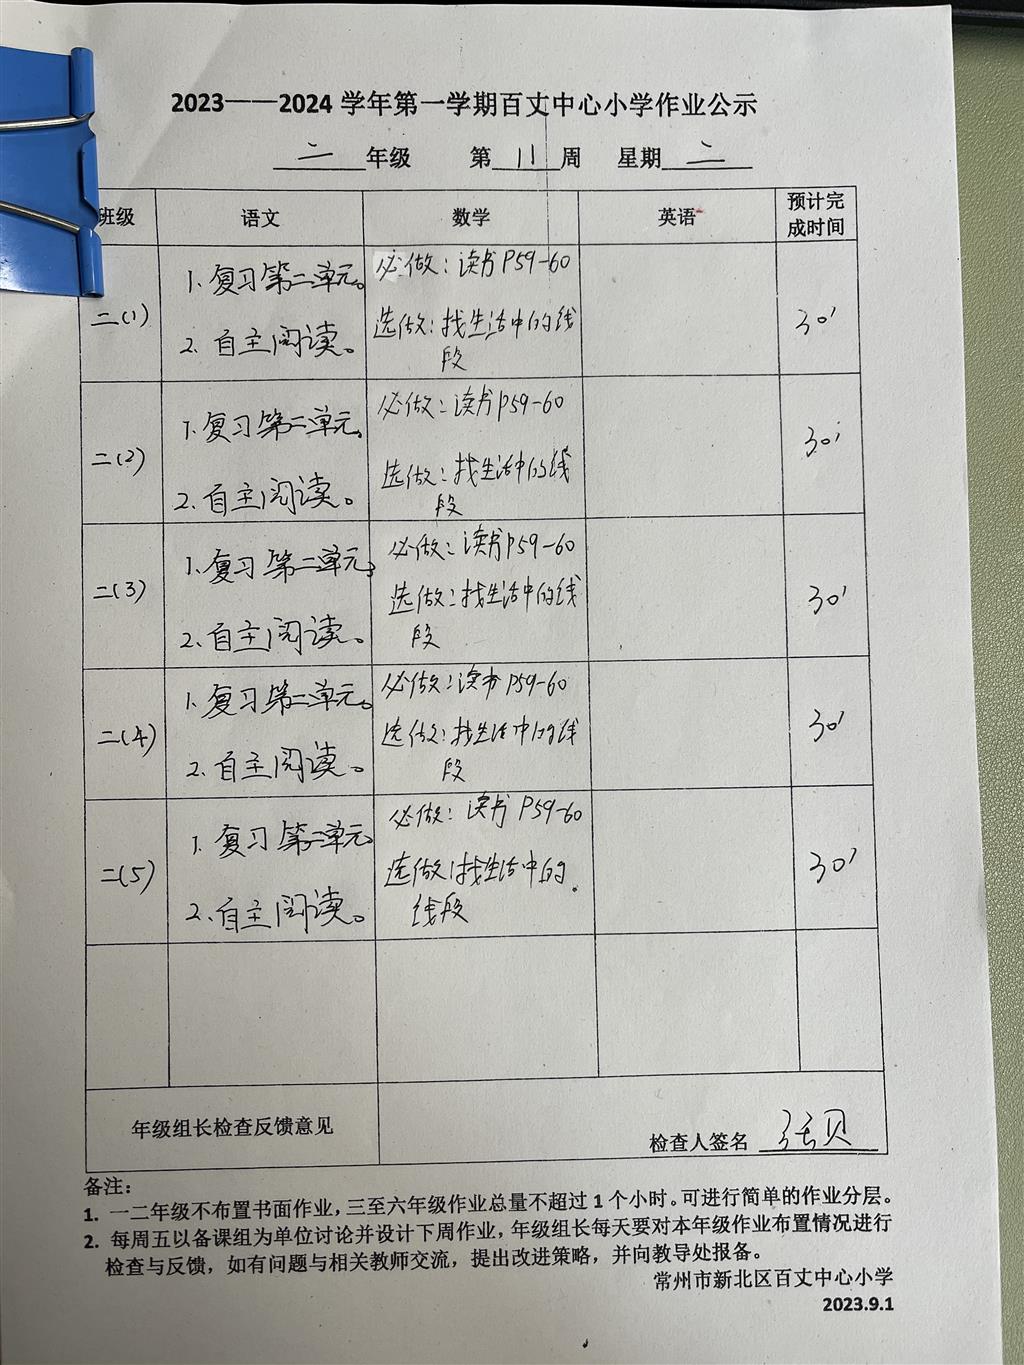 2023——2024 学年第一学期百丈中心小学作业公示
二 年级 第 11 周 星期 二
班级 语文 数学 英语 预计完成时间
二(1)
1. 复习第二单元。
2. 自主阅读。
必做：读书P59-60
选做：找生活中的线
段
30'
二(2)
1. 复习第二单元。
2. 自主阅读。
必做：读书P59-60
选做：找生活中的线
段
30'
二(3)
1. 复习第二单元。
2. 自主阅读。
必做：读书P59-60
选做：找生活中的线
段
30'
二(4)
1. 复习第二单元。
2. 自主阅读。
必做：读书P59-60
选做：找生活中的线
段
30'
二(5)
1. 复习第二单元
2. 自主阅读。
必做：读书P59-60
选做：找生活中的
线段
30'
年级组长检查反馈意见
检查人签名 张贝
备注：
1. 一二年级不布置书面作业，三至六年级作业总量不超过 1 个小时。可进行简单的作业分层。
2. 每周五以备课组为单位讨论并设计下周作业，年级组长每天要对本年级作业布置情况进行
检查与反馈，如有问题与相关教师交流，提出改进策略，并向教导处报备。
常州市新北区百丈中心小学
2023.9.1